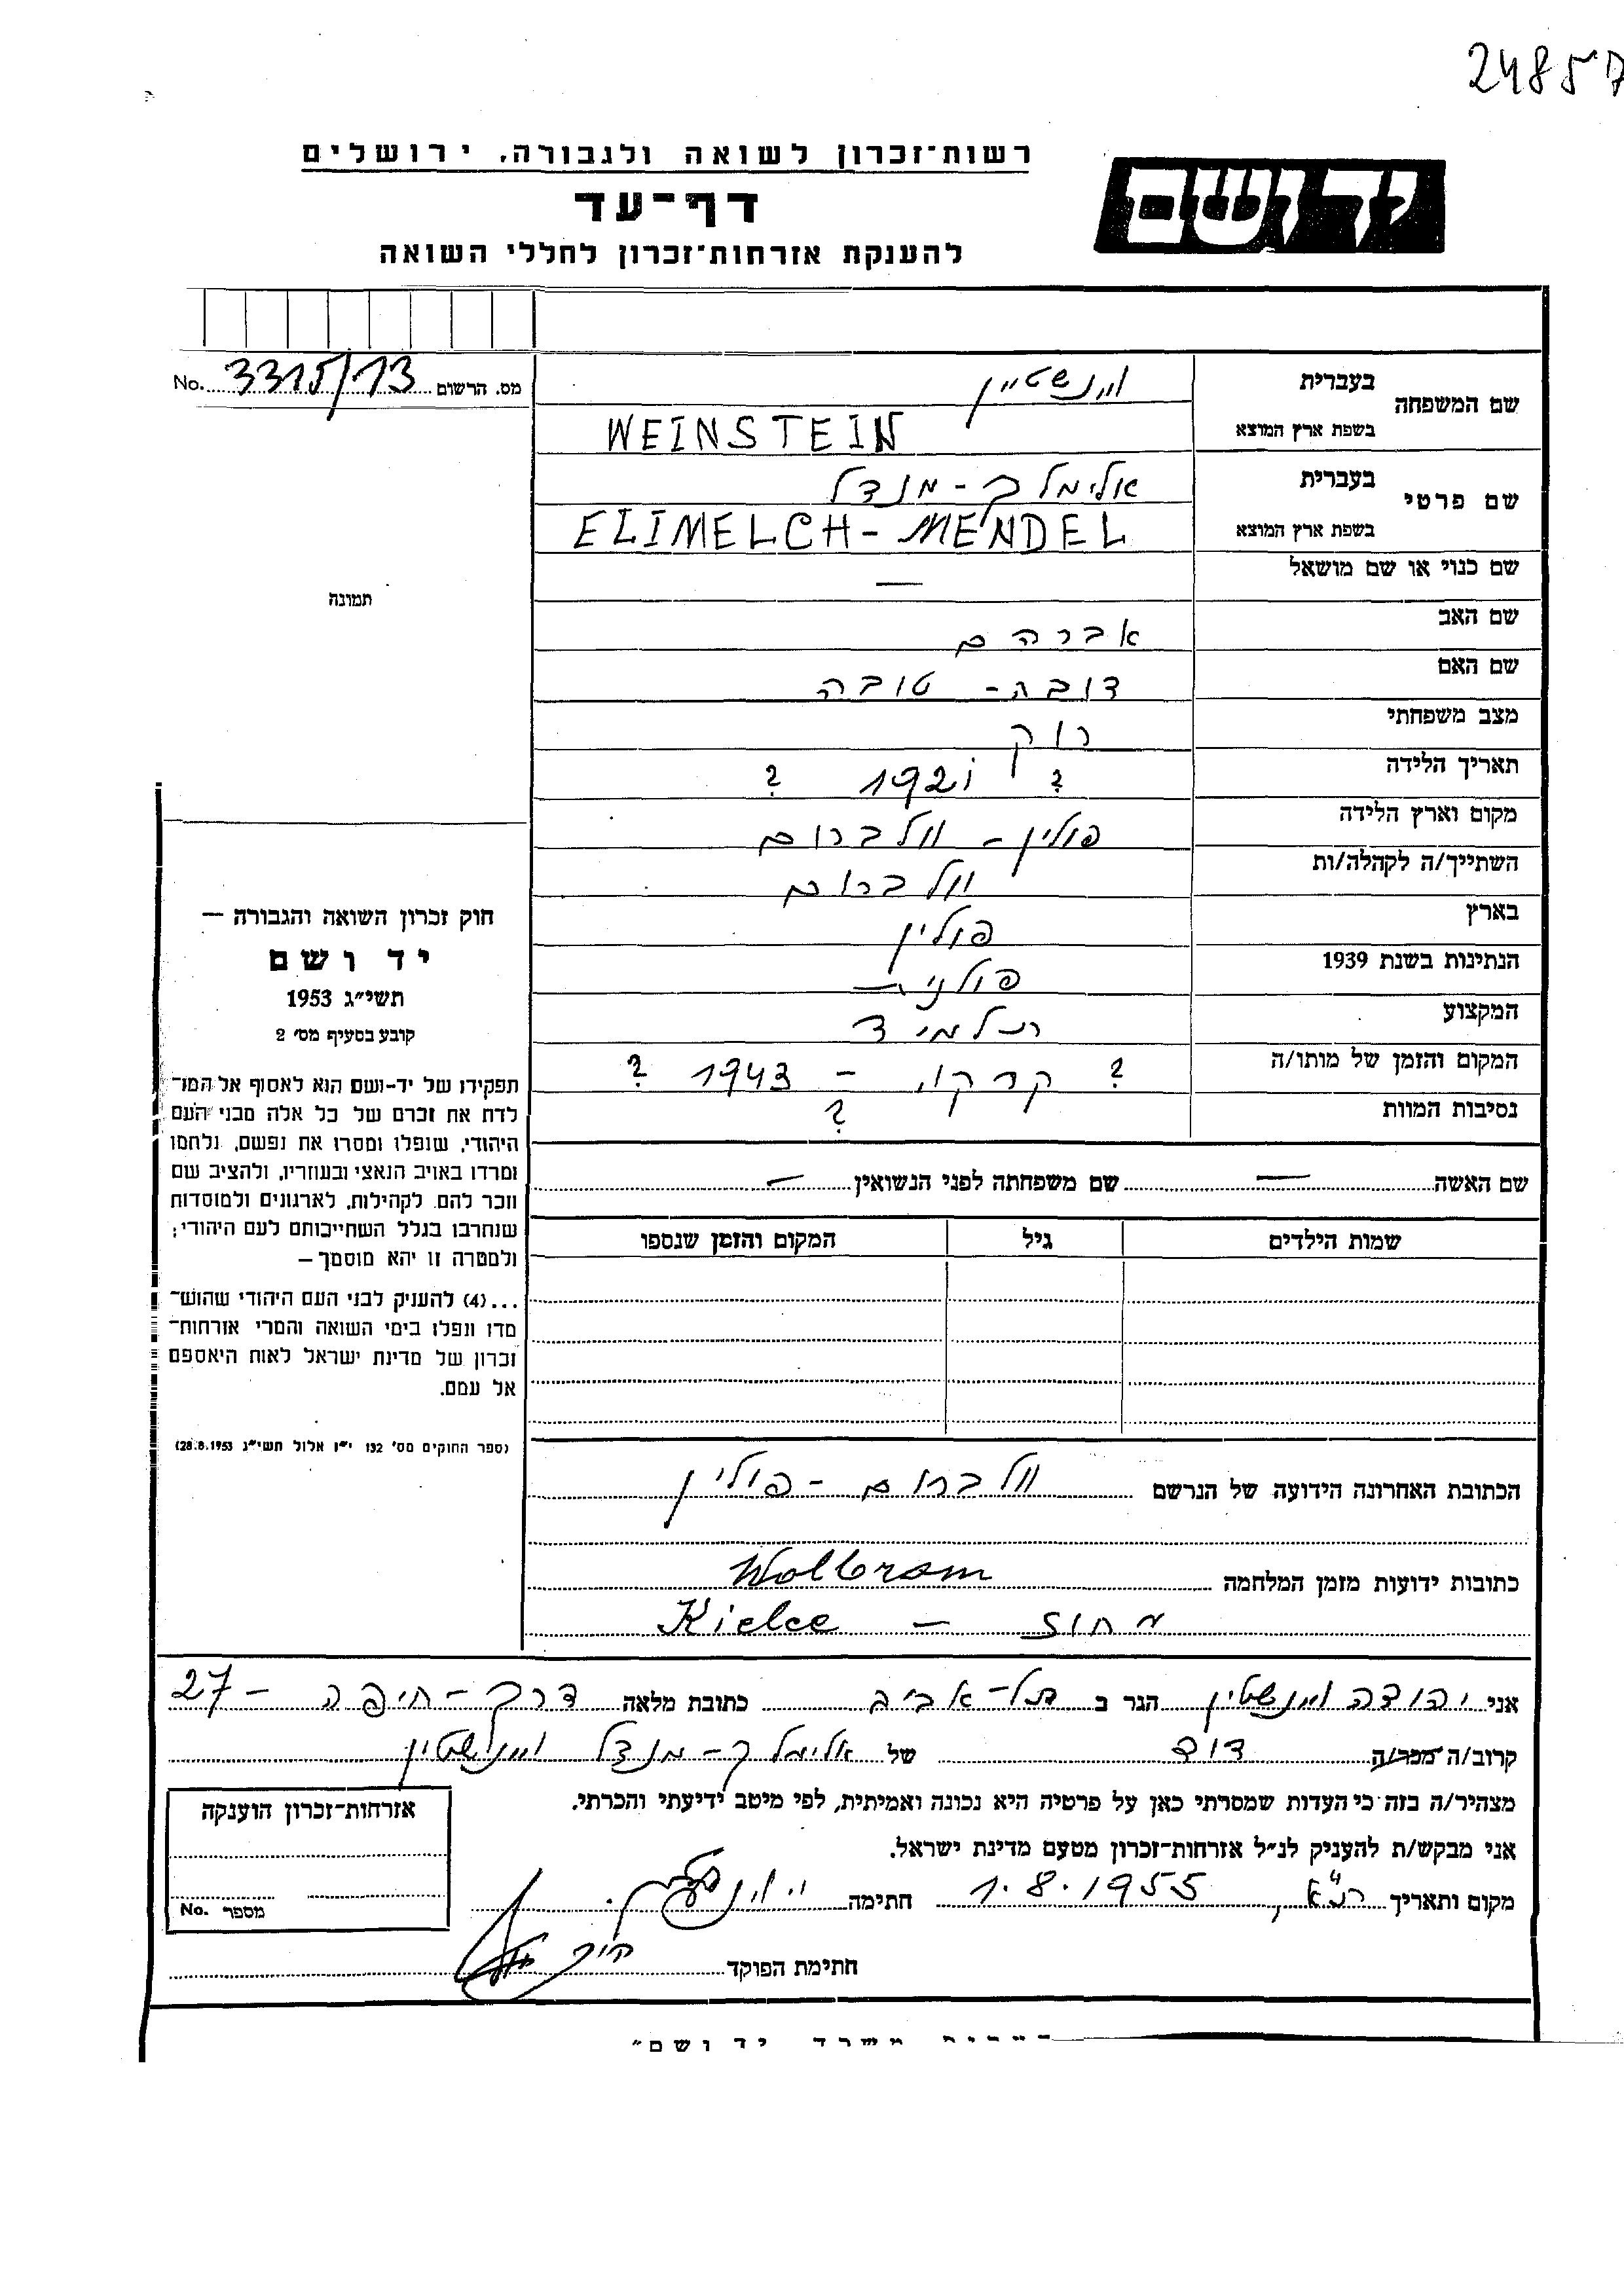 24857
רשות־זכרון לשואה ולגבורה, ירושלים
יד ושם
דף־עד
להענקת אזרחות־זכרון לחללי השואה
מס. הרשום 3315/13 No.
שם המשפחה
בעברית וינשטיין
בשפת ארץ המוצא WEINSTEIN
שם פרטי
בעברית אלימלך - מנדל
בשפת ארץ המוצא ELIMELCH - MENDEL
שם כנוי או שם מושאל —
תמונה
שם האב אברהם
שם האם דובה - טובה
מצב משפחתי רוק
תאריך הלידה ? 1921 ?
מקום וארץ הלידה פולין - וולברום
השתייך/ה לקהלה/ות וולברום
בארץ פולין
הנתינות בשנת 1939 פולנית
המקצוע תלמיד
המקום והזמן של מותו/ה ? קרקוב - 1943 ?
נסיבות המוות ?
שם האשה — שם משפחתה לפני הנשואין —
שמות הילדים גיל המקום והזמן שנספו
חוק זכרון השואה והגבורה —
יד ושם
תשי״ג 1953
קובע בסעיף מס׳ 2
תפקידו של יד-ושם הוא לאסוף אל המו־
לדת את זכרם של כל אלה מבני העם
היהודי, שנפלו ומסרו את נפשם, נלחמו
ומרדו באויב הנאצי ובעוזריו, ולהציב שם
וזכר להם, לקהילות, לארגונים ולמוסדות
שנחרבו בגלל השתייכותם לעם היהודי;
ולמטרה זו יהא מוסמך —
...(4) להעניק לבני העם היהודי שהוש־
מדו ונפלו בימי השואה והמרי אזרחות־
זכרון של מדינת ישראל לאות היאספם
אל עמם.
(ספר החוקים מס׳ 132 י״ז אלול תשי״ג 28.8.1953)
הכתובת האחרונה הידועה של הנרשם וולברום - פולין
כתובות ידועות מזמן המלחמה Wolbrom
מחוז - Kielce
אני יהודה וינשטין הגר ב תל-אביב כתובת מלאה דרך - חיפה - 27
קרוב/ה מכר/ה דוד של אלימלך - מנדל וינשטין
מצהיר/ה בזה כי העדות שמסרתי כאן על פרטיה היא נכונה ואמיתית, לפי מיטב ידיעתי והכרתי.
אני מבקש/ת להעניק לנ״ל אזרחות־זכרון מטעם מדינת ישראל.
מקום ותאריך ת״א, 1.8.1955 חתימה
חתימת הפוקד
אזרחות־זכרון הוענקה
מספר No.
משרד יד ושם״